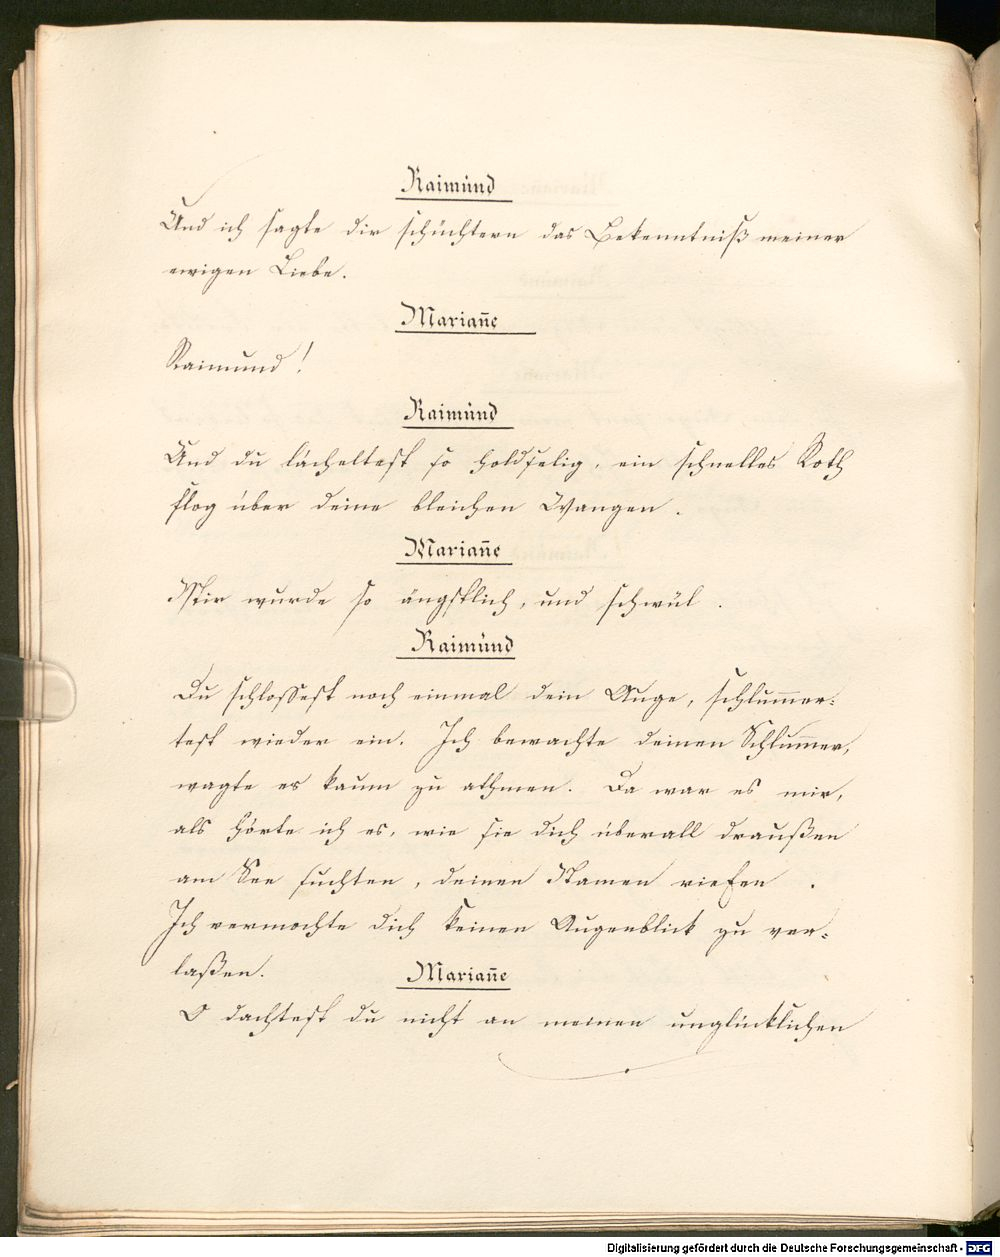 Raimund
Und ich sagte dir schüchtern das Bekenntniß meiner
ewigen Liebe.
Mariañe
Raimund!
Raimund
Und du lächeltest so holdselig, ein schnelles Roth
flog über deine bleichen Wangen.
Mariañe
Mir wurde so ängstlich, und schwül.
Raimund
Du schlossest noch einmal dein Auge, schlum̄er:
test wieder ein. Ich bewachte deinen Schlum̄er,
wagte es kaum zu athmen. Da war es mir,
als hörte ich es, wie sie dich überall draußen
am See suchten, deinen Namen riefen.
Ich vermochte dich keinen Augenblick zu ver:
laßen.
Mariañe
O dachtest du nicht an meinen unglücklichen
Digitalisierung gefördert durch die Deutsche Forschungsgemeinschaft - DFG